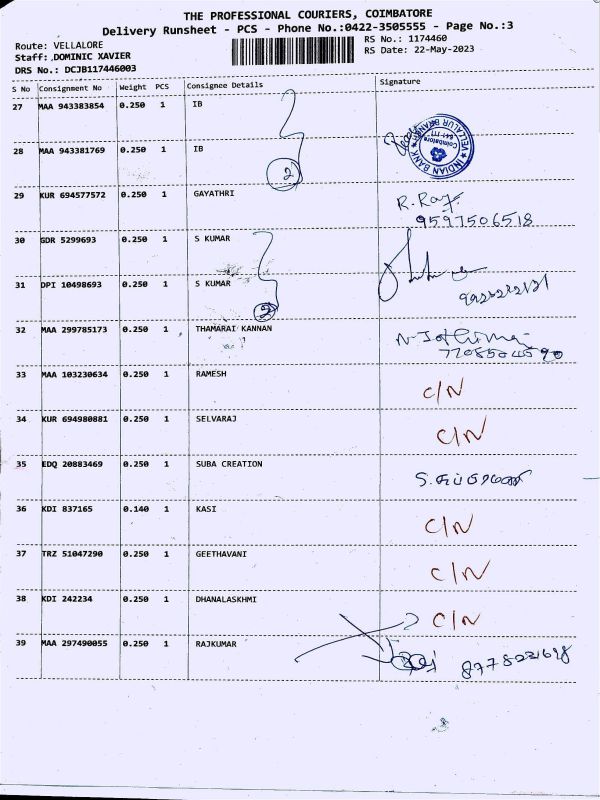 THE PROFESSIONAL COURIERS, COIMBATORE
Delivery Runsheet - PCS - Phone No.:0422-3505555 - Page No.:3
Route: VELLALORE
RS No.: 1174460
Staff: DOMINIC XAVIER
RS Date: 22-May-2023
DRS No.: DCJB117446003
S No Consignment No Weight PCS Consignee Details Signature
27 MAA 943383854 0.250 1 IB
28 MAA 943381769 0.250 1 IB
2
INDIAN BANK
VELLALUR BRANCH
Coimbatore
641 111
29 KUR 694577572 0.250 1 GAYATHRI R. Raj.
9597506518
30 GDR 5299693 0.250 1 S KUMAR
31 DPI 10498693 0.250 1 S KUMAR
2
32 MAA 299785173 0.250 1 THAMARAI KANNAN
33 MAA 103230634 0.250 1 RAMESH C/N
34 KUR 694980881 0.250 1 SELVARAJ C/N
35 EDQ 20883469 0.250 1 SUBA CREATION
36 KDI 837165 0.140 1 KASI C/N
37 TRZ 51047290 0.250 1 GEETHAVANI C/N
38 KDI 242234 0.250 1 DHANALASKHMI C/N
39 MAA 297490055 0.250 1 RAJKUMAR